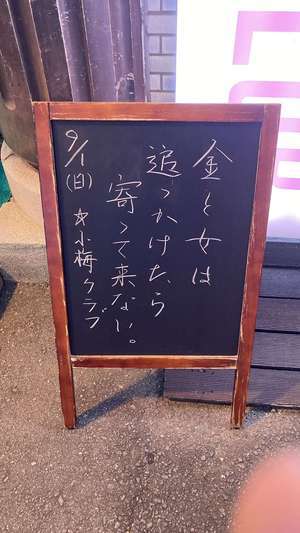 金と女は
追っかけたら
寄って来ない。
9/1(日) ☆小梅クラブ